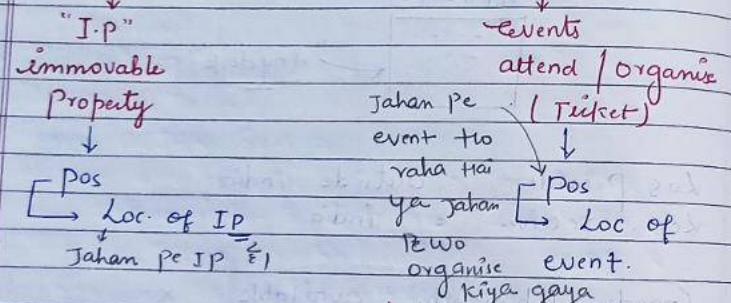 "I.P"
immovable
Property
↓
Pos
→ Loc. of IP
↓
Jahan pe IP है।
events
attend / organise
(Ticket)
↓
Pos
→ Loc of
event.
Jahan pe
event Ho
raha Hai
ya Jahan
pe wo
organise
kiya gaya